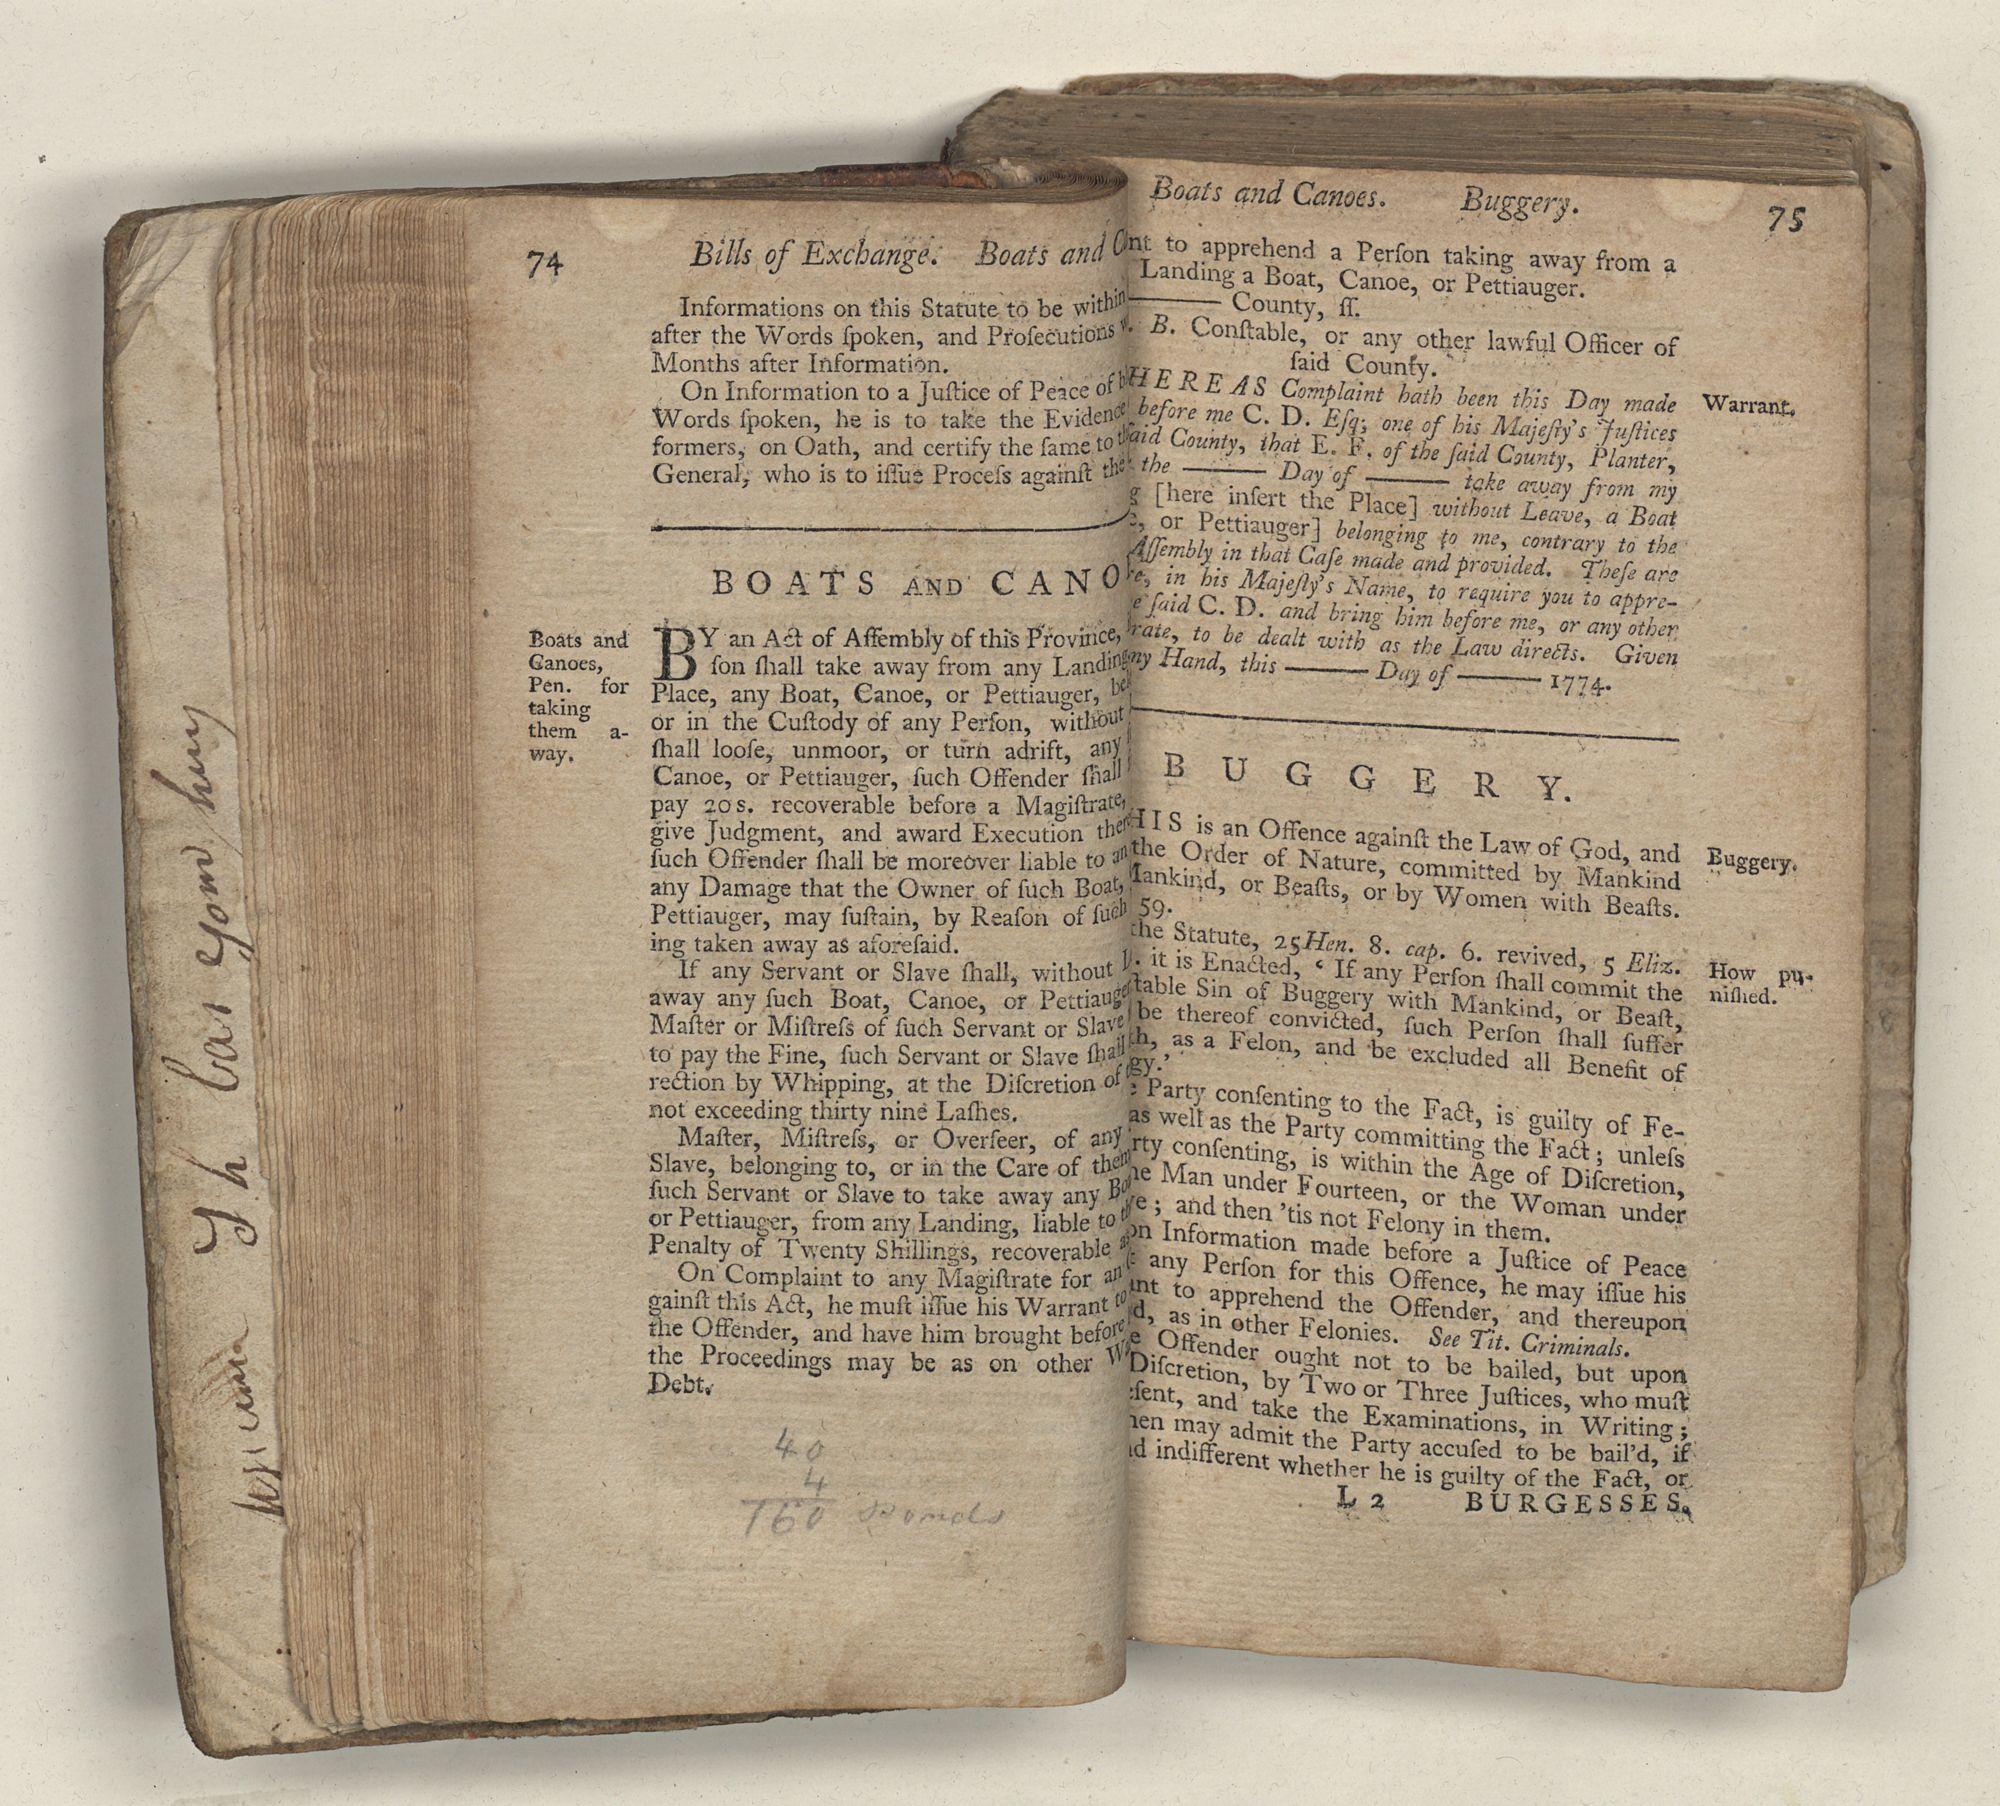 74
Bills of Exchange. Boats and
Informations on this Statute to be within
after the Words ſpoken, and Proſecutions
Months after Information.
On Information to a Juſtice of Peace of
Words ſpoken, he is to take the Evidence
formers, on Oath, and certify the ſame to
General, who is to iſſue Proceſs againſt the
BOATS AND CANO
Boats and
Canoes,
Pen. for
taking
them a-
way.
BY an Act of Aſſembly of this Province,
ſon ſhall take away from any Landing
Place, any Boat, Canoe, or Pettiauger,
or in the Cuſtody of any Perſon, without
ſhall looſe, unmoor, or turn adrift, any
Canoe, or Pettiauger, ſuch Offender ſhall
pay 20s. recoverable before a Magiſtrate,
give Judgment, and award Execution
ſuch Offender ſhall be moreover liable to
any Damage that the Owner of ſuch Boat,
Pettiauger, may ſuſtain, by Reaſon of ſuch
ing taken away as aforeſaid.
If any Servant or Slave ſhall, without
away any ſuch Boat, Canoe, or Pettiauge
Maſter or Miſtreſs of ſuch Servant or Slave
to pay the Fine, ſuch Servant or Slave ſhall
rection by Whipping, at the Diſcretion of
not exceeding thirty nine Laſhes.
Maſter, Miſtreſs, or Overſeer, of any
Slave, belonging to, or in the Care of them
ſuch Servant or Slave to take away any
or Pettiauger, from any Landing, liable to
Penalty of Twenty Shillings, recoverable
On Complaint to any Magiſtrate for
gainſt this Act, he muſt iſſue his Warrant to
the Offender, and have him brought before
the Proceedings may be as on other
Debt.
40
4
760
Boats and Canoes. Buggery.
75
nt to apprehend a Perſon taking away from a
Landing a Boat, Canoe, or Pettiauger.
County, ſſ.
B. Conſtable, or any other lawful Officer of
ſaid County.
HEREAS Complaint hath been this Day made
before me C. D. Eſq; one of his Majeſty's Juſtices
ſaid County, that E. F. of the ſaid County, Planter,
the ——— Day of ——— take away from my
[here inſert the Place] without Leave, a Boat
or Pettiauger] belonging to me, contrary to the
Aſſembly in that Caſe made and provided. Theſe are
in his Majeſty's Name, to require you to appre-
ſaid C. D. and bring him before me, or any other
rate, to be dealt with as the Law directs. Given
my Hand, this ——— Day of ——— 1774.
Warrant.
BUGGERY.
HIS is an Offence againſt the Law of God, and
the Order of Nature, committed by Mankind
Mankind, or Beaſts, or by Women with Beaſts.
59.
Buggery.
the Statute, 25 Hen. 8. cap. 6. revived, 5 Eliz.
it is Enacted, ‘ If any Perſon ſhall commit the
table Sin of Buggery with Mankind, or Beaſt,
be thereof convicted, ſuch Perſon ſhall ſuffer
th, as a Felon, and be excluded all Benefit of
gy.’
How pu-
niſhed.
Party conſenting to the Fact, is guilty of Fe-
as well as the Party committing the Fact; unleſs
rty conſenting, is within the Age of Diſcretion,
he Man under Fourteen, or the Woman under
ve; and then 'tis not Felony in them.
on Information made before a Juſtice of Peace
any Perſon for this Offence, he may iſſue his
ant to apprehend the Offender, and thereupon
d, as in other Felonies. See Tit. Criminals.
e Offender ought not to be bailed, but upon
Diſcretion, by Two or Three Juſtices, who muſt
eſent, and take the Examinations, in Writing;
hen may admit the Party accuſed to be bail'd, if
nd indifferent whether he is guilty of the Fact, or
L 2 BURGESSES.